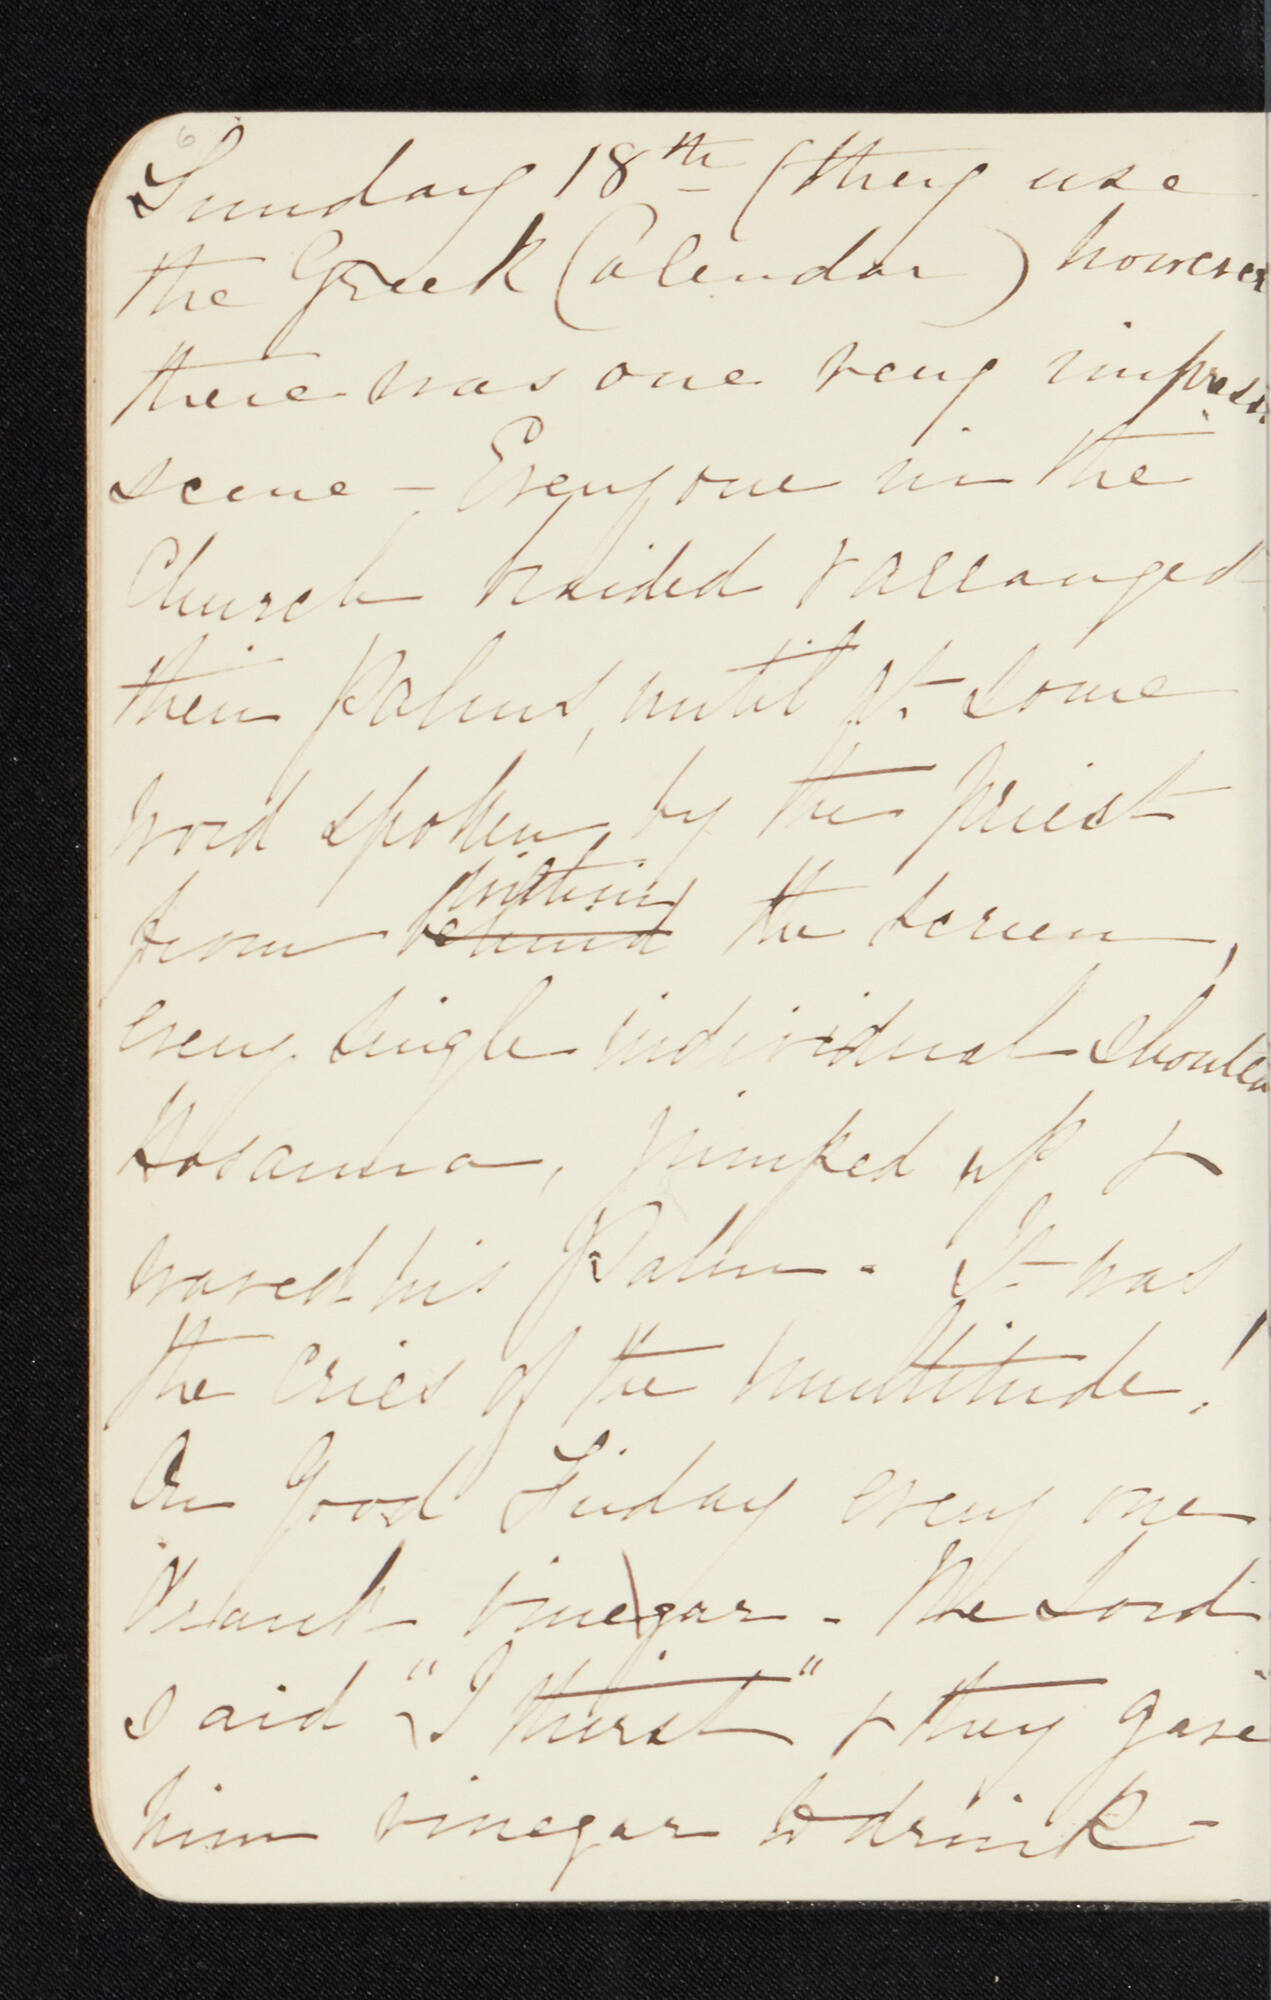 6
Sunday 18th (they use
the Greek Calendar) however
there was one very impressi
scene - Everyone in the
Church braided & arranged
their Palms, until at some
word spoken by the Priest
from behind within the screen,
every single individual shouted
Hosanna, jumped up &
waved his Palm. It was
the cries of the multitude!
On Good Friday every one
drank vinegar - The Lord
said "I thirst" & they gave
him vinegar to drink -